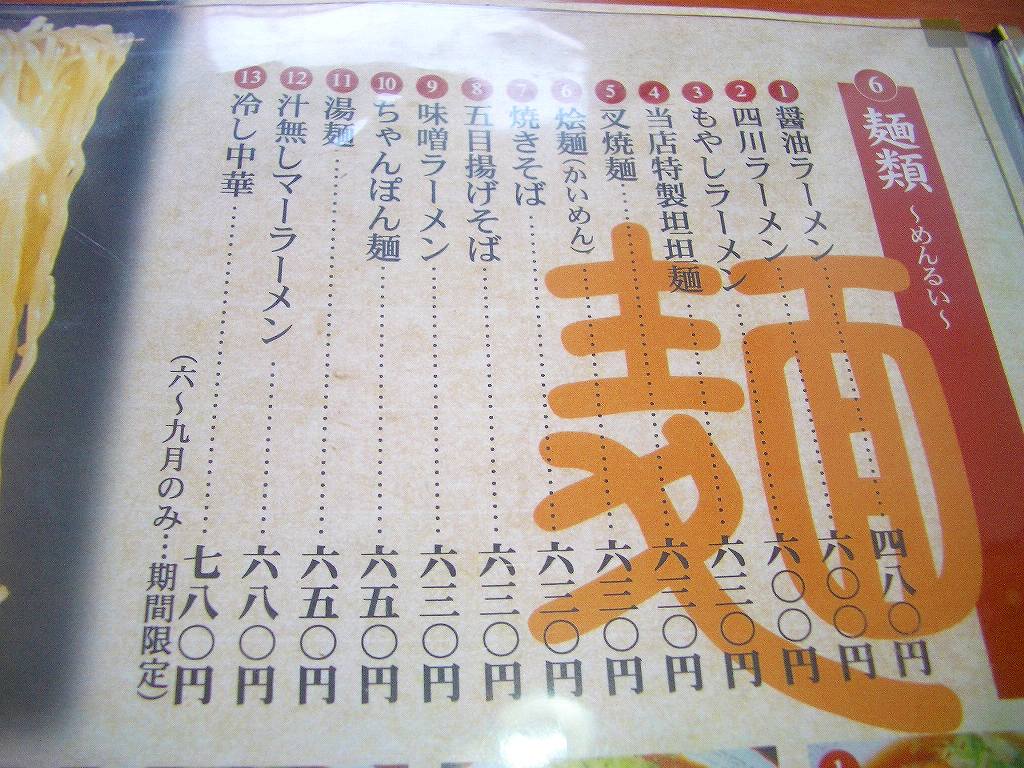 6 麺類 〜めんるい〜
1 醤油ラーメン……四八〇円
2 四川ラーメン……六〇〇円
3 もやしラーメン……六〇〇円
4 当店特製坦坦麺……六三〇円
5 叉焼麺……六三〇円
6 烩麺(かいめん)……六三〇円
7 焼きそば……六三〇円
8 五目揚げそば……六三〇円
9 味噌ラーメン……六三〇円
10 ちゃんぽん麺……六五〇円
11 湯麺……六五〇円
12 汁無しマーラーメン……六八〇円
13 冷し中華……七八〇円
(六〜九月のみ…期間限定)
麺
1